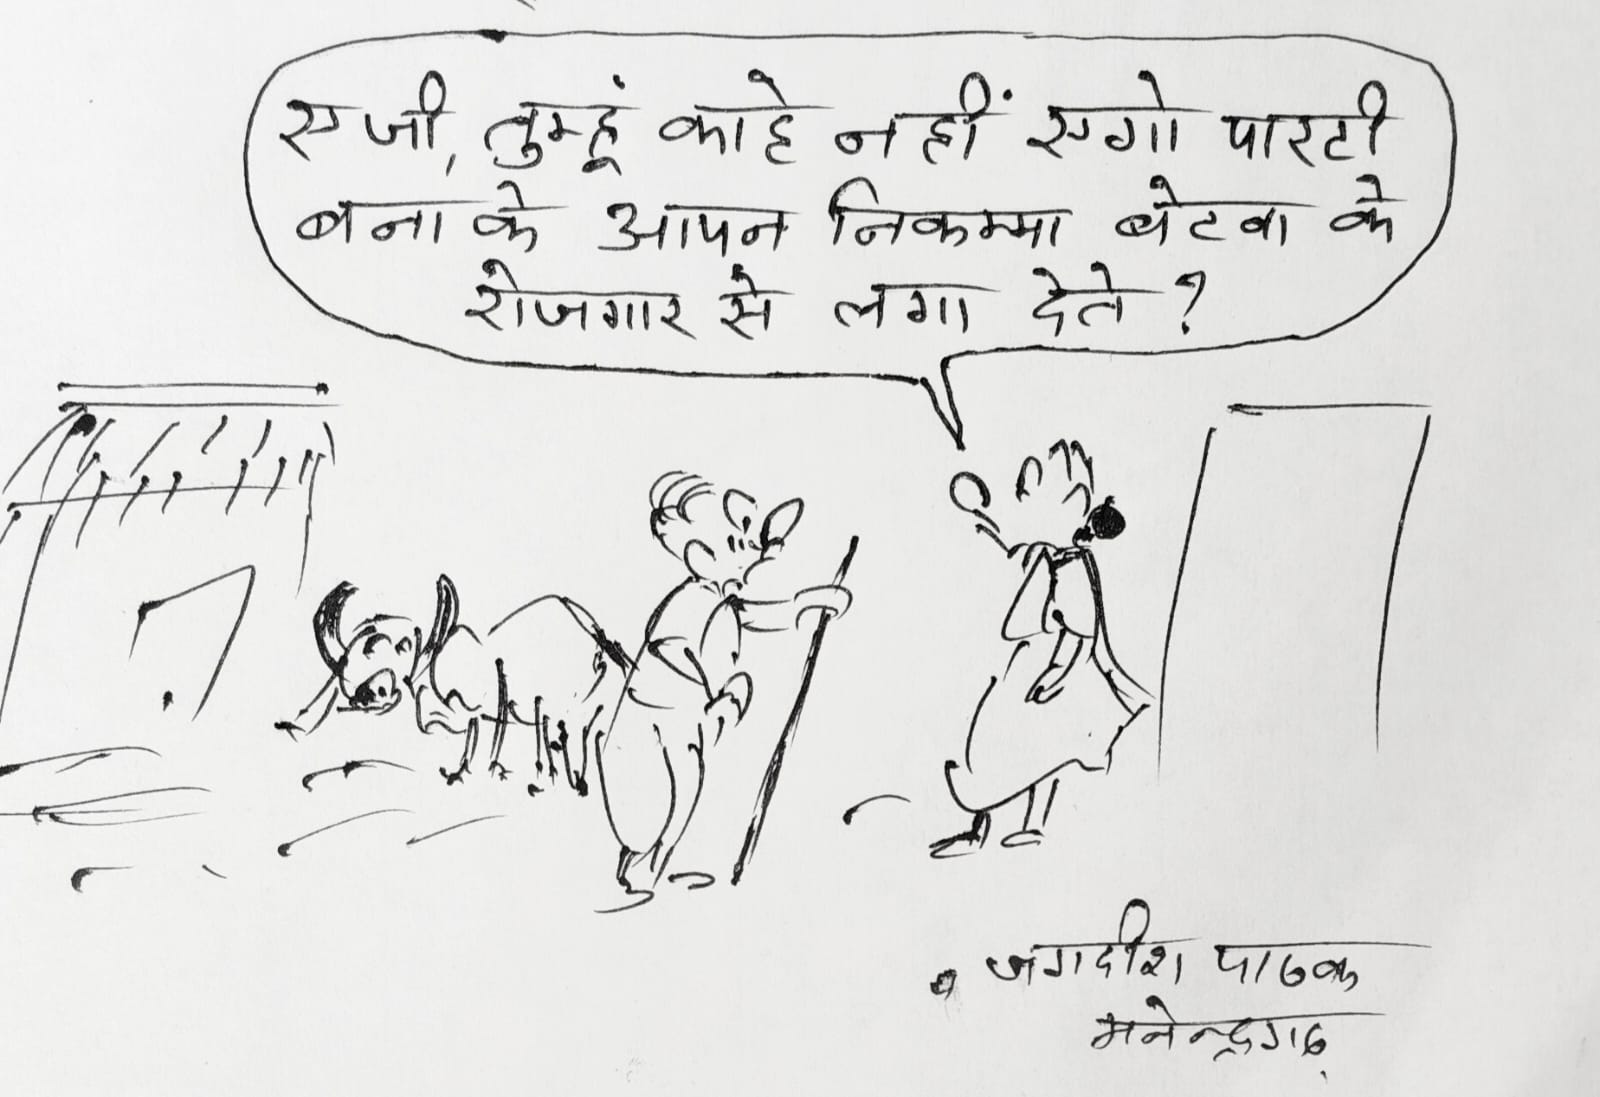 ए जी, तुम्हूं काहे नहीं एगो पारटी
बना के आपन निकम्मा बेटवा के
रोजगार से लगा देते ?
जगदीश पाठक
मनेन्द्रगढ़